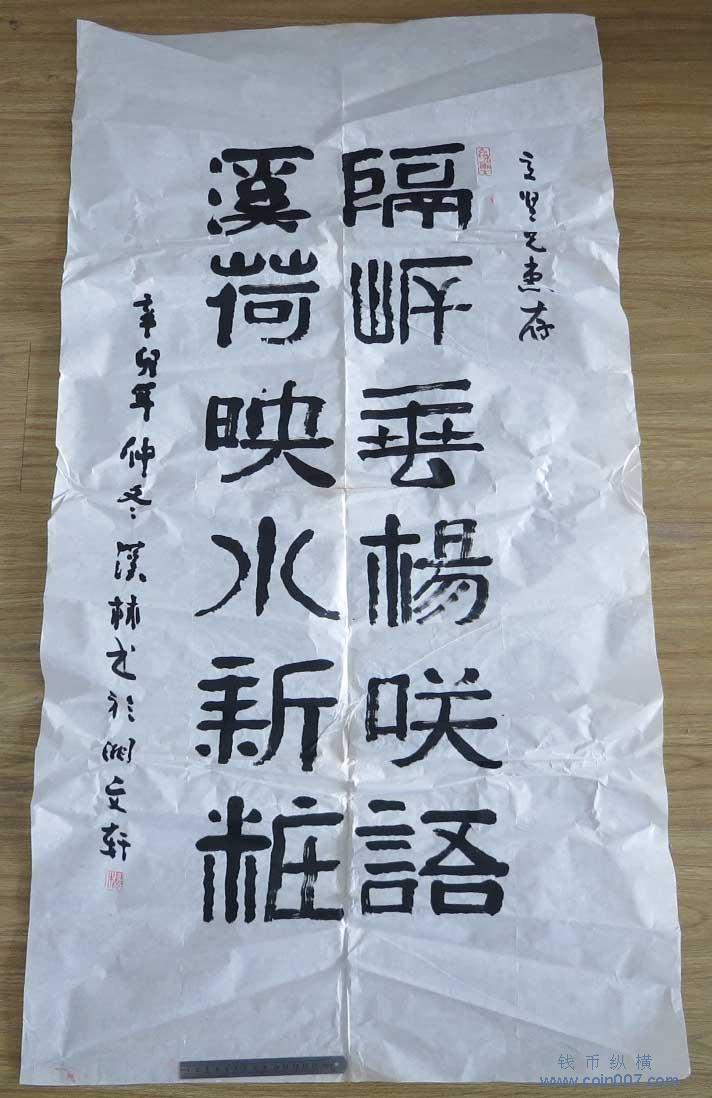 兄惠存
隔岸垂楊咲語
溪荷映水新粧
辛卯年仲冬漢林书於湘文轩
钱币纵横
www.coin007.com